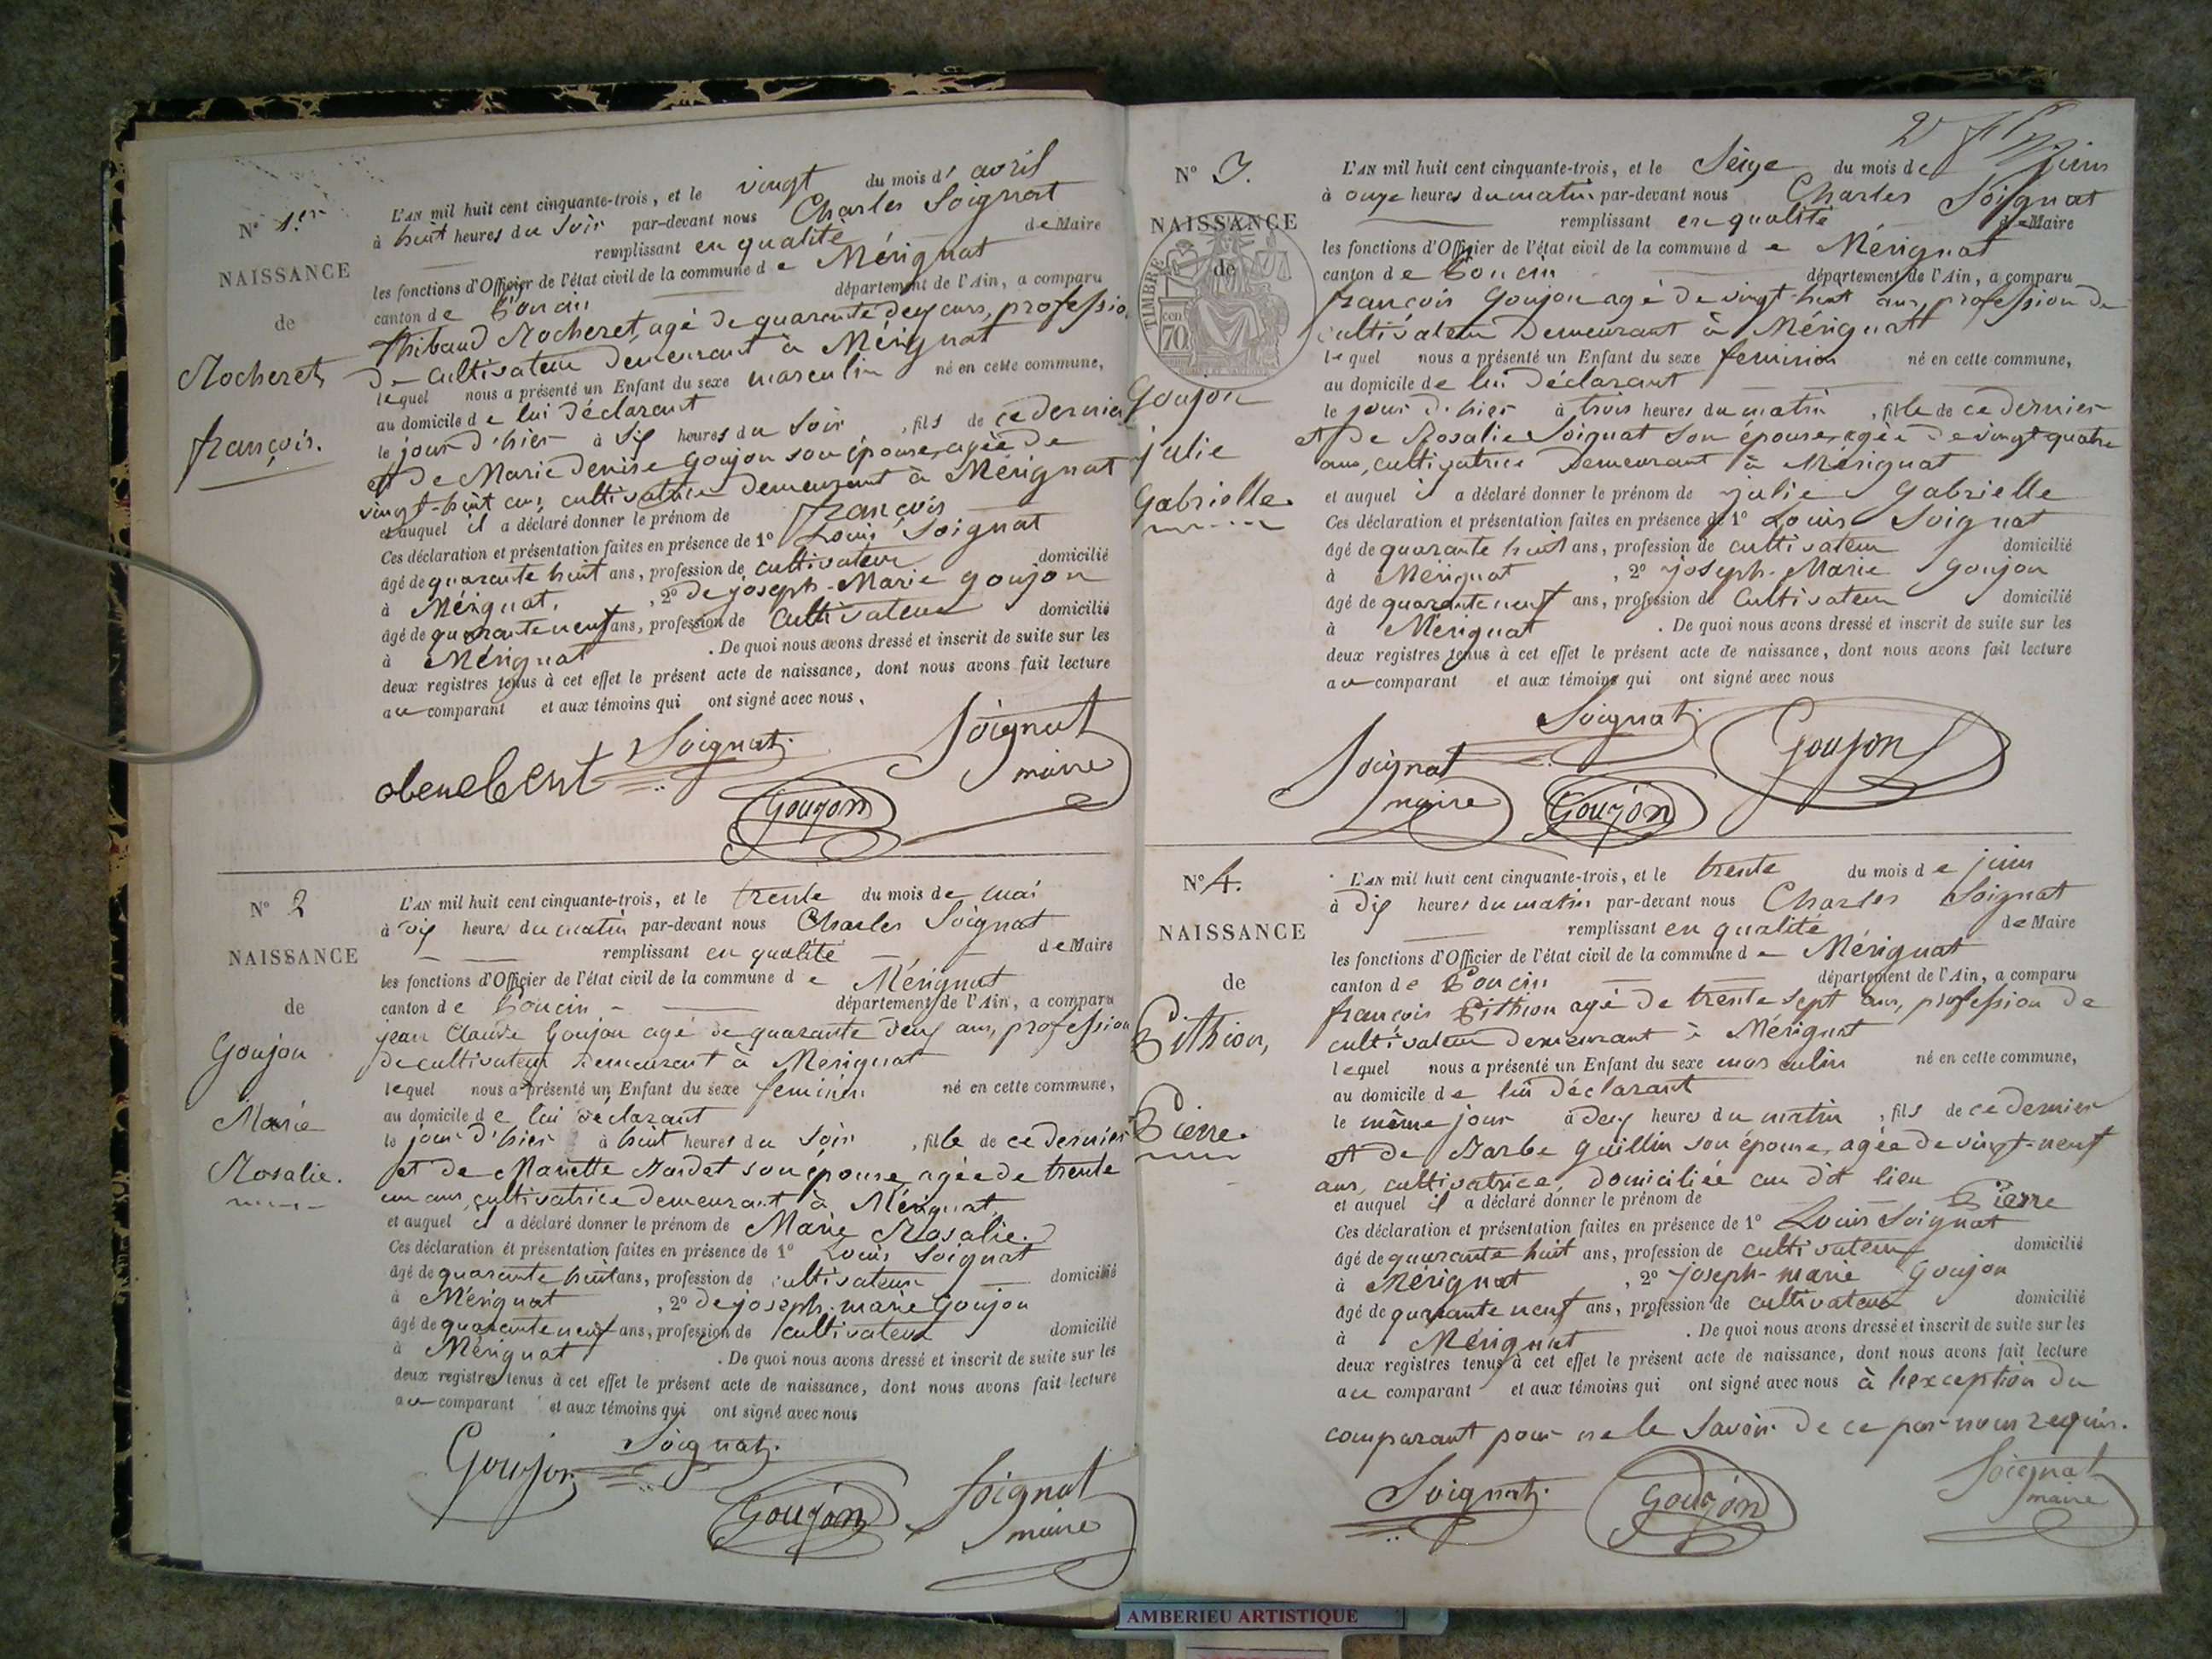 N° 1.er
NAISSANCE
de
Rocheret
françois.
L'AN mil huit cent cinquante-trois, et le vingt du mois d' avril
à huit heures du soir par-devant nous Charles Soignat
remplissant en qualité de Maire
les fonctions d'Officier de l'état civil de la commune de Mérignat
canton de Poncin département de l'Ain, a comparu
Thibaud Rocheret, agé de quarante deux ans, profession
de cultivateur demeurant à Mérignat
lequel nous a présenté un Enfant du sexe masculin né en cette commune,
au domicile de lui déclarant
le jour d'hier à six heures du soir, fils de ce dernier
et de Marie Denise Goujon son épouse, agée de
vingt-huit ans, cultivatrice demeurant à Mérignat
et auquel il a déclaré donner le prénom de françois
Ces déclaration et présentation faites en présence de 1° Louis Soignat
âgé de quarante huit ans, profession de cultivateur domicilié
à Mérignat, , 2° de joseph-Marie goujon
âgé de quarante neuf ans, profession de Cultivateur domicilié
à Mérignat . De quoi nous avons dressé et inscrit de suite sur les
deux registres tenus à cet effet le présent acte de naissance, dont nous avons fait lecture
au comparant et aux témoins qui ont signé avec nous,
Soignat Soignat
maire
Goujon
N° 2
NAISSANCE
de
Goujon
Marie
Rosalie.
L'AN mil huit cent cinquante-trois, et le trente du mois de mai
à dix heures du matin par-devant nous Charles Soignat
remplissant en qualité de Maire
les fonctions d'Officier de l'état civil de la commune de Mérignat
canton de Poncin département de l'Ain, a comparu
jean Claude Goujon agé de quarante deux ans, profession
de cultivateur demeurant à Mérignat
lequel nous a présenté un Enfant du sexe feminin né en cette commune,
au domicile de lui déclarant
le jour d'hier à huit heures du soir, fille de ce dernier
et de Mariette Jardet son épouse, agée de trente
un ans, cultivatrice demeurant à Mérignat
et auquel il a déclaré donner le prénom de Marie Rosalie.
Ces déclaration et présentation faites en présence de 1° Louis Soignat
âgé de quarante huit ans, profession de cultivateur domicilié
à Mérignat , 2° de joseph-marie Goujon
âgé de quarante neuf ans, profession de cultivateur domicilié
à Mérignat . De quoi nous avons dressé et inscrit de suite sur les
deux registres tenus à cet effet le présent acte de naissance, dont nous avons fait lecture
au comparant et aux témoins qui ont signé avec nous
Goujon Soignat
Goujon Soignat
maire
2
N° 3.
NAISSANCE
de
TIMBRE
70 cen
Goujon
julie
Gabrielle.
L'AN mil huit cent cinquante-trois, et le Seize du mois de juin
à onze heures du matin par-devant nous Charles Soignat
remplissant en qualité de Maire
les fonctions d'Officier de l'état civil de la commune de Mérignat
canton de Poncin département de l'Ain, a comparu
françois Goujon agé de vingt huit ans, profession de
cultivateur demeurant à Mérignat
lequel nous a présenté un Enfant du sexe feminin né en cette commune,
au domicile de lui déclarant
le jour d'hier à trois heures du matin, fille de ce dernier
et de Rosalie Soignat son épouse, agée de vingt quatre
ans, cultivatrice demeurant à Mérignat
et auquel il a déclaré donner le prénom de julie Gabrielle
Ces déclaration et présentation faites en présence de 1° Louis Soignat
âgé de quarante huit ans, profession de cultivateur domicilié
à Mérignat , 2° joseph-Marie Goujon
âgé de quarante neuf ans, profession de Cultivateur domicilié
à Mérignat . De quoi nous avons dressé et inscrit de suite sur les
deux registres tenus à cet effet le présent acte de naissance, dont nous avons fait lecture
au comparant et aux témoins qui ont signé avec nous
Soignat
Soignat Goujon
maire Goujon
N° 4.
NAISSANCE
de
Pithion,
Pierre.
L'AN mil huit cent cinquante-trois, et le trente du mois de juin
à dix heures du matin par-devant nous Charles Soignat
remplissant en qualité de Maire
les fonctions d'Officier de l'état civil de la commune de Mérignat
canton de Poncin département de l'Ain, a comparu
françois Pithion agé de trente sept ans, profession de
cultivateur demeurant à Mérignat
lequel nous a présenté un Enfant du sexe masculin né en cette commune,
au domicile de lui déclarant
le même jour à deux heures du matin, fils de ce dernier
et de Barbe guillin son épouse, agée de vingt-neuf
ans, cultivatrice, domiciliée au dit lieu
et auquel il a déclaré donner le prénom de Pierre
Ces déclaration et présentation faites en présence de 1° Louis Soignat
âgé de quarante huit ans, profession de cultivateur domicilié
à Mérignat , 2° joseph-marie Goujon
âgé de quarante neuf ans, profession de cultivateur domicilié
à Mérignat . De quoi nous avons dressé et inscrit de suite sur les
deux registres tenus à cet effet le présent acte de naissance, dont nous avons fait lecture
au comparant et aux témoins qui ont signé avec nous à l'exception du
comparant pour ne le savoir de ce par nous requis.
Soignat Goujon Soignat
maire
AMBERIEU ARTISTIQUE